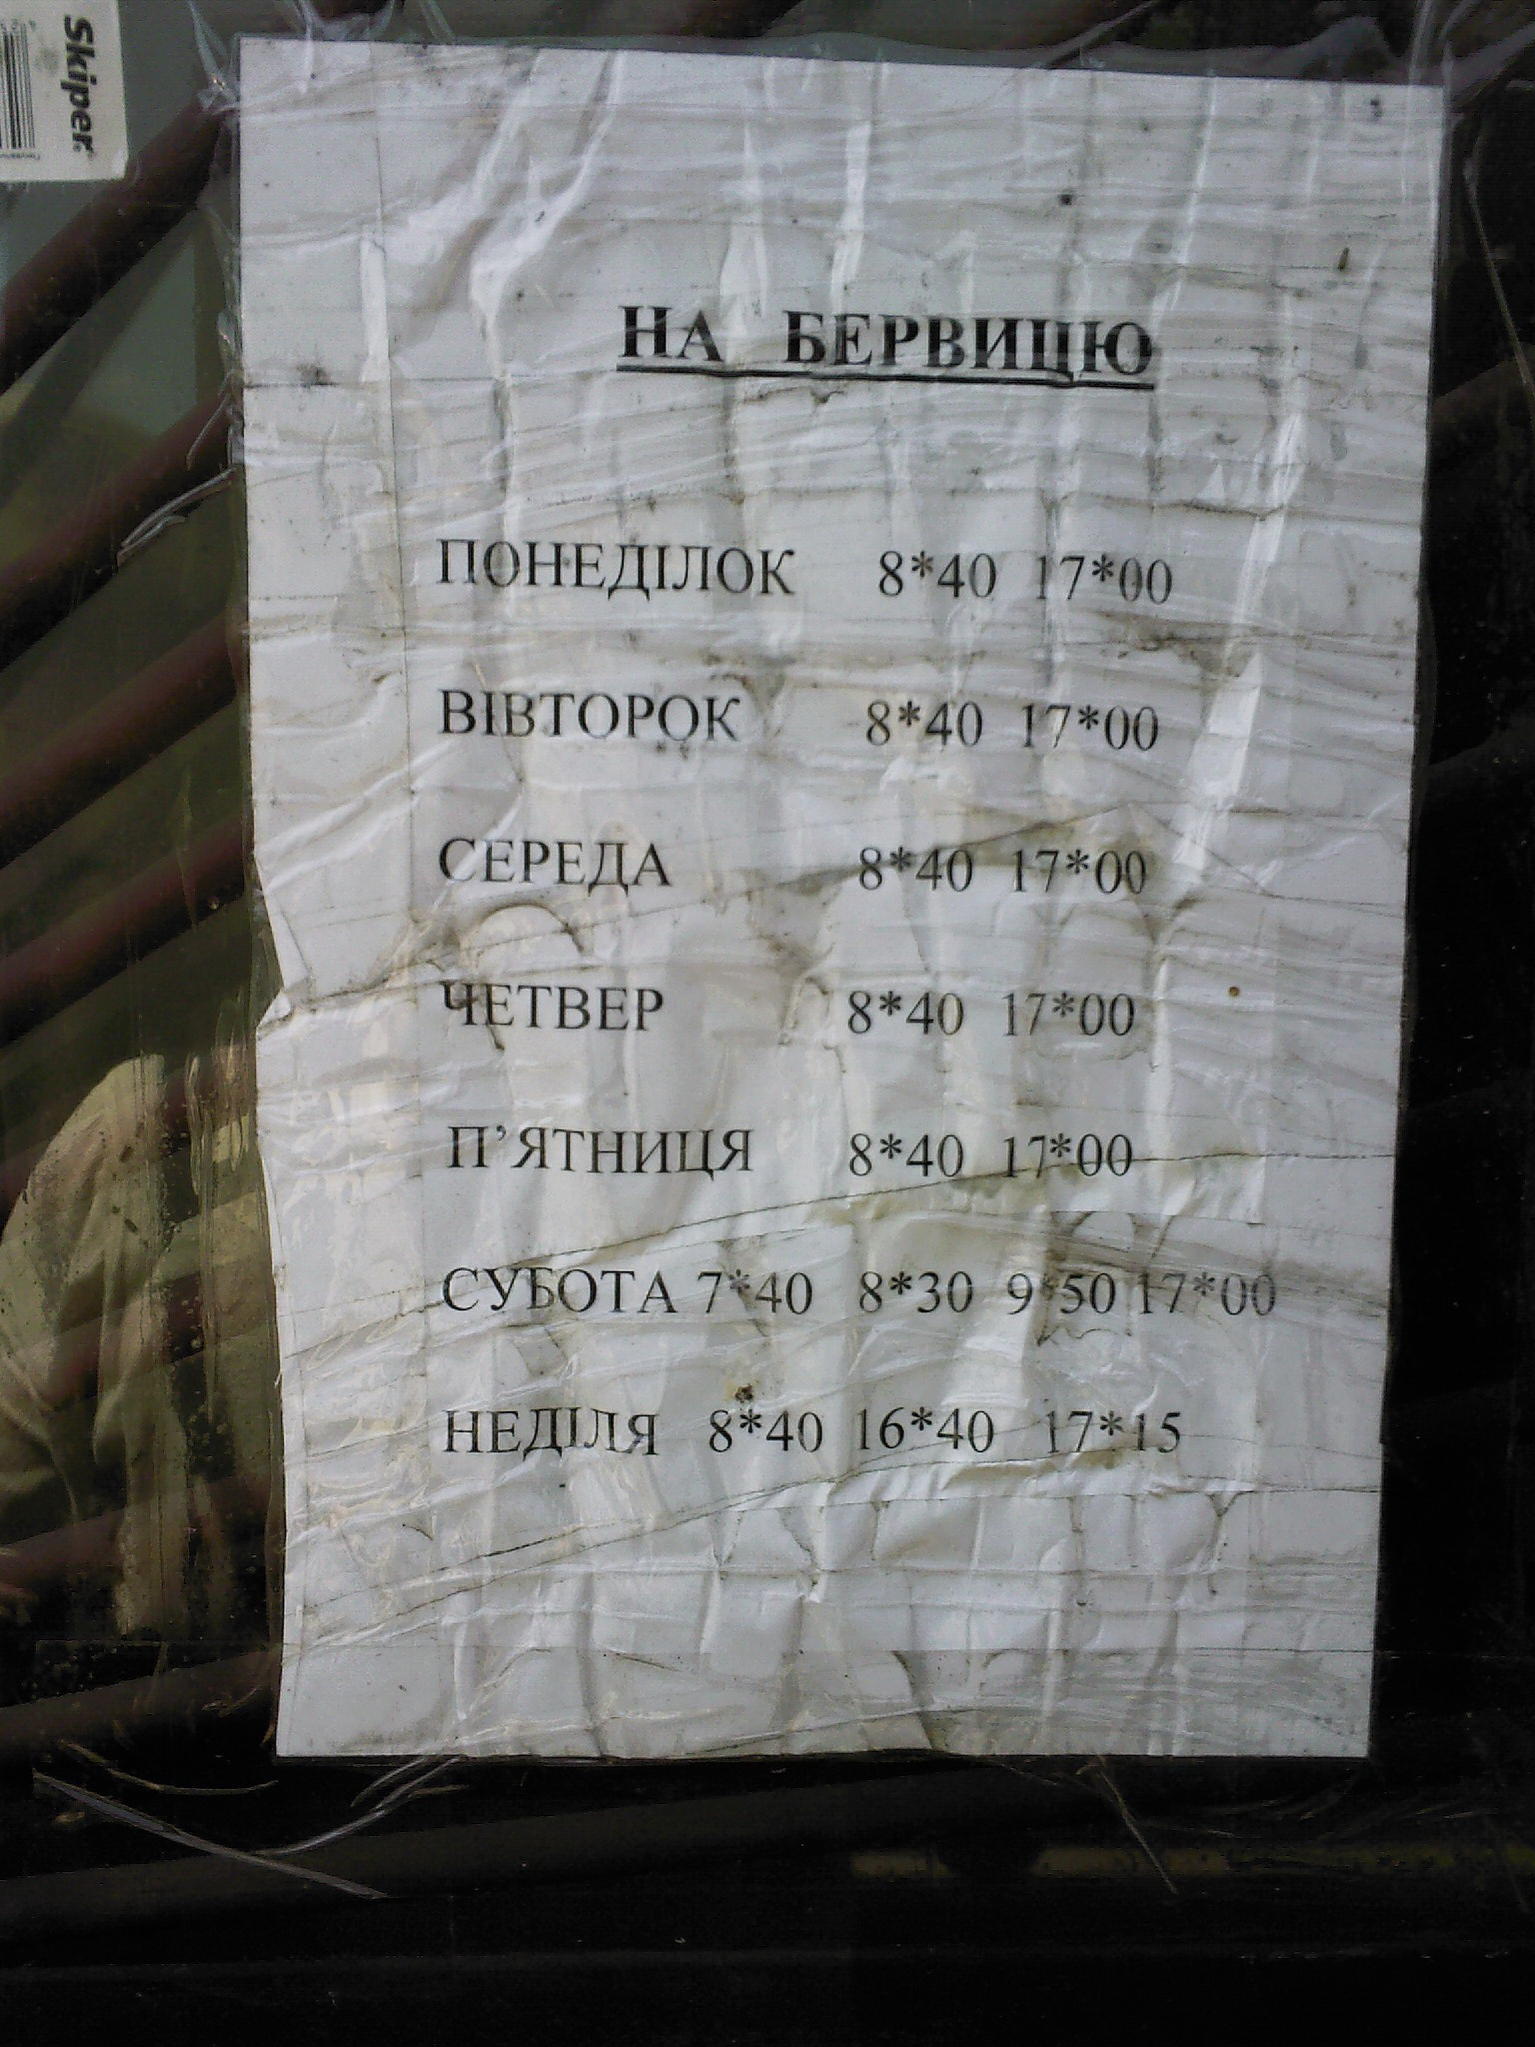 Skiper
НА БЕРВИЦЮ
ПОНЕДІЛОК 8*40 17*00
ВІВТОРОК 8*40 17*00
СЕРЕДА 8*40 17*00
ЧЕТВЕР 8*40 17*00
П’ЯТНИЦЯ 8*40 17*00
СУБОТА 7*40 8*30 9*50 17*00
НЕДІЛЯ 8*40 16*40 17*15